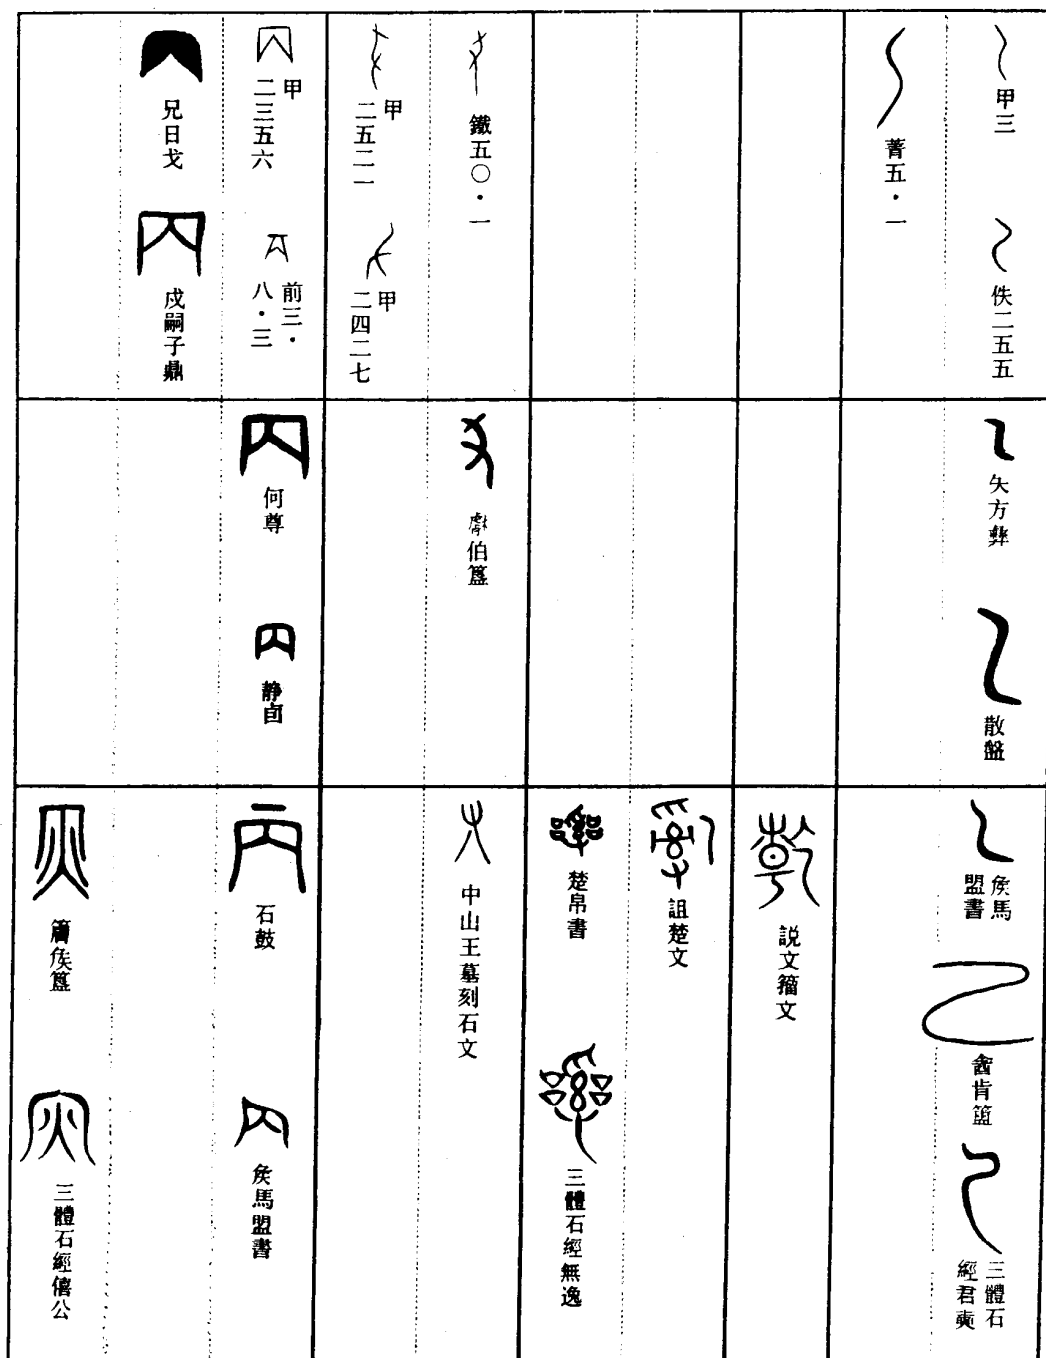 甲三
佚二五五
菁五・一
鐵五〇・一
甲二五二一
甲二四二七
甲二三五六
前三・八・三
兄日戈
戍嗣子鼎
夨方彝
散盤
伯簋
何尊
静卣
侯馬盟書
酓肯簠
三體石經君奭
説文籀文
詛楚文
楚帛書
三體石經無逸
中山王墓刻石文
石鼓
侯馬盟書
侯簋
三體石經僖公